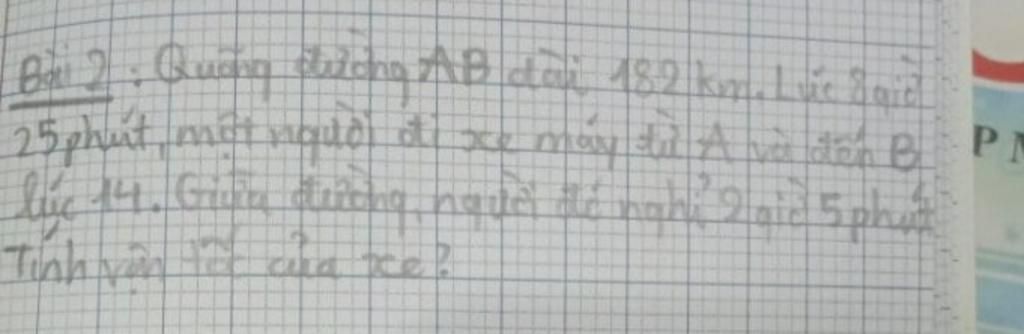 Bài 2: Quãng đường AB dài 182 km. Lúc 8 giờ
25 phút, một người đi xe máy từ A và đến B
lúc 14. Giữa đường, người đó nghỉ 2 giờ 5 phút
Tính vận tốc của xe?
P